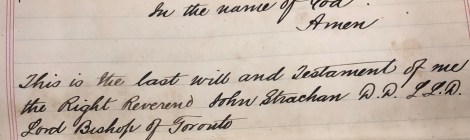 In the name of God.
Amen
This is the last will and Testament of me
the Right Reverend John Strachan D.D. L.L.D.
Lord Bishop of Toronto